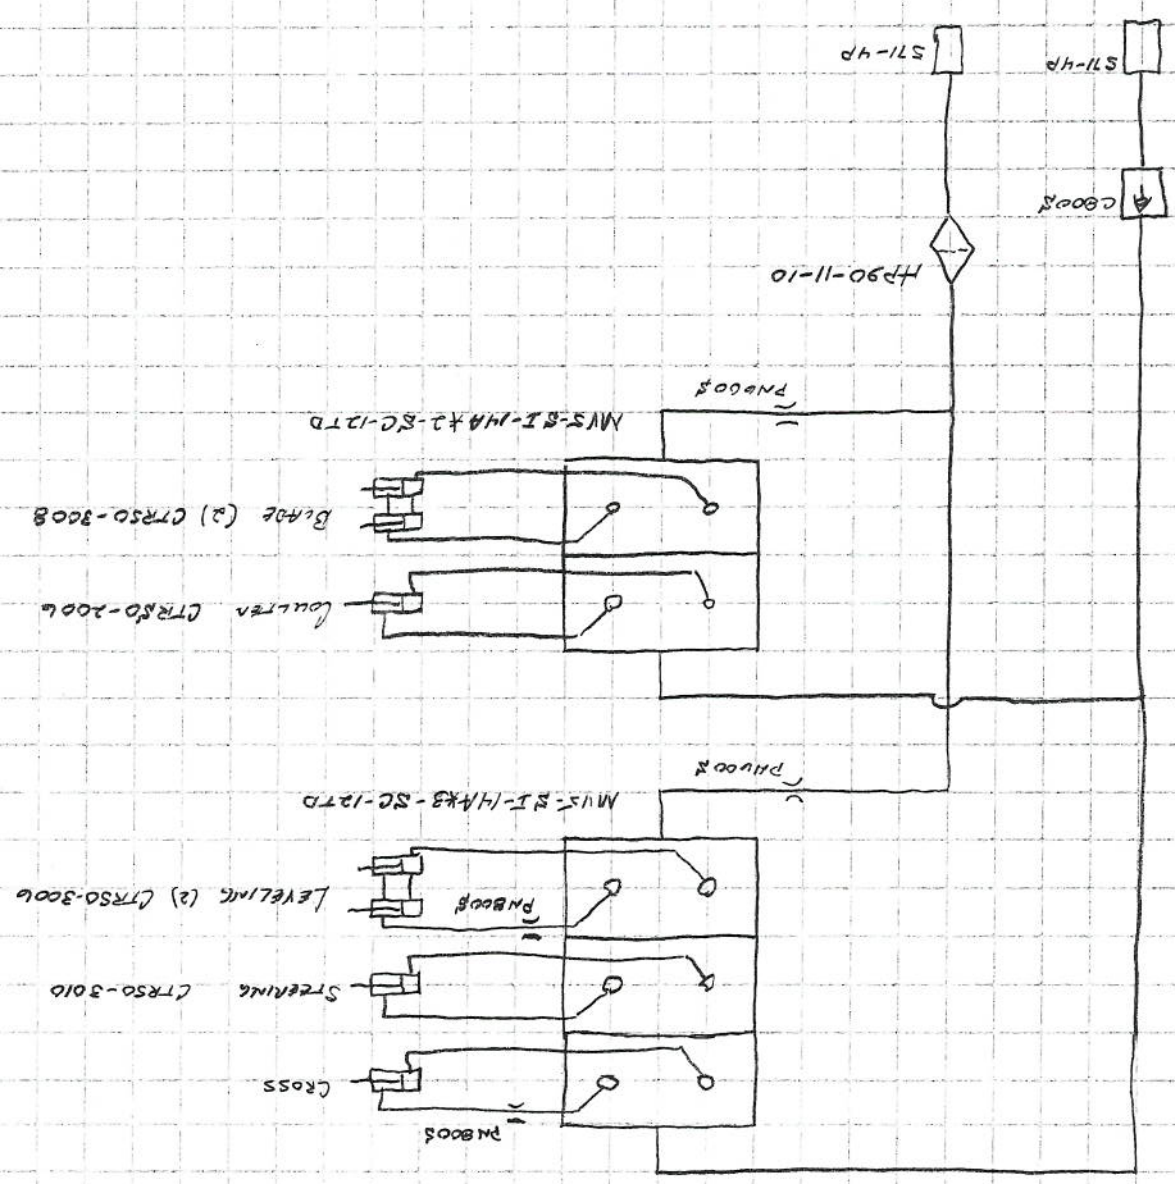 PN800S
CROSS
STEERING CTR50-3010
PN800S
LEVELING (2) CTR50-3006
MVS-SI-14A*3-SC-12TD
PN600S
COULTER CTR50-2006
BLADE (2) CTR50-3008
MVS-SI-14A*2-SC-12TD
PN600S
HP90-11-10
C800S
S71-4P
S71-4P